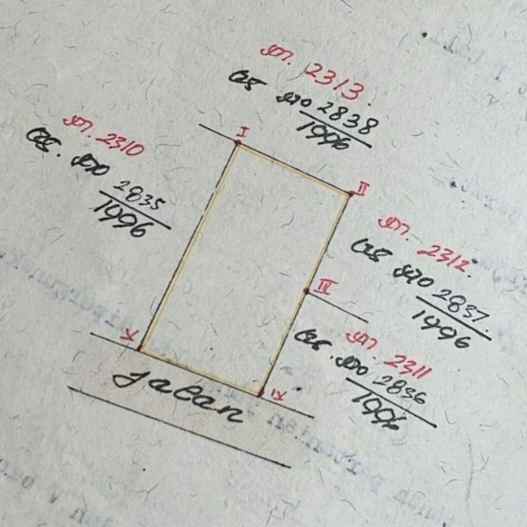 M. 2313
GS 970 2838
1996
I
M. 2310
GS. 970 2835
1996
II
M. 2312
GS 970 2837
1996
III
M. 2311
GS. 970 2836
1996
V
IV
jalan